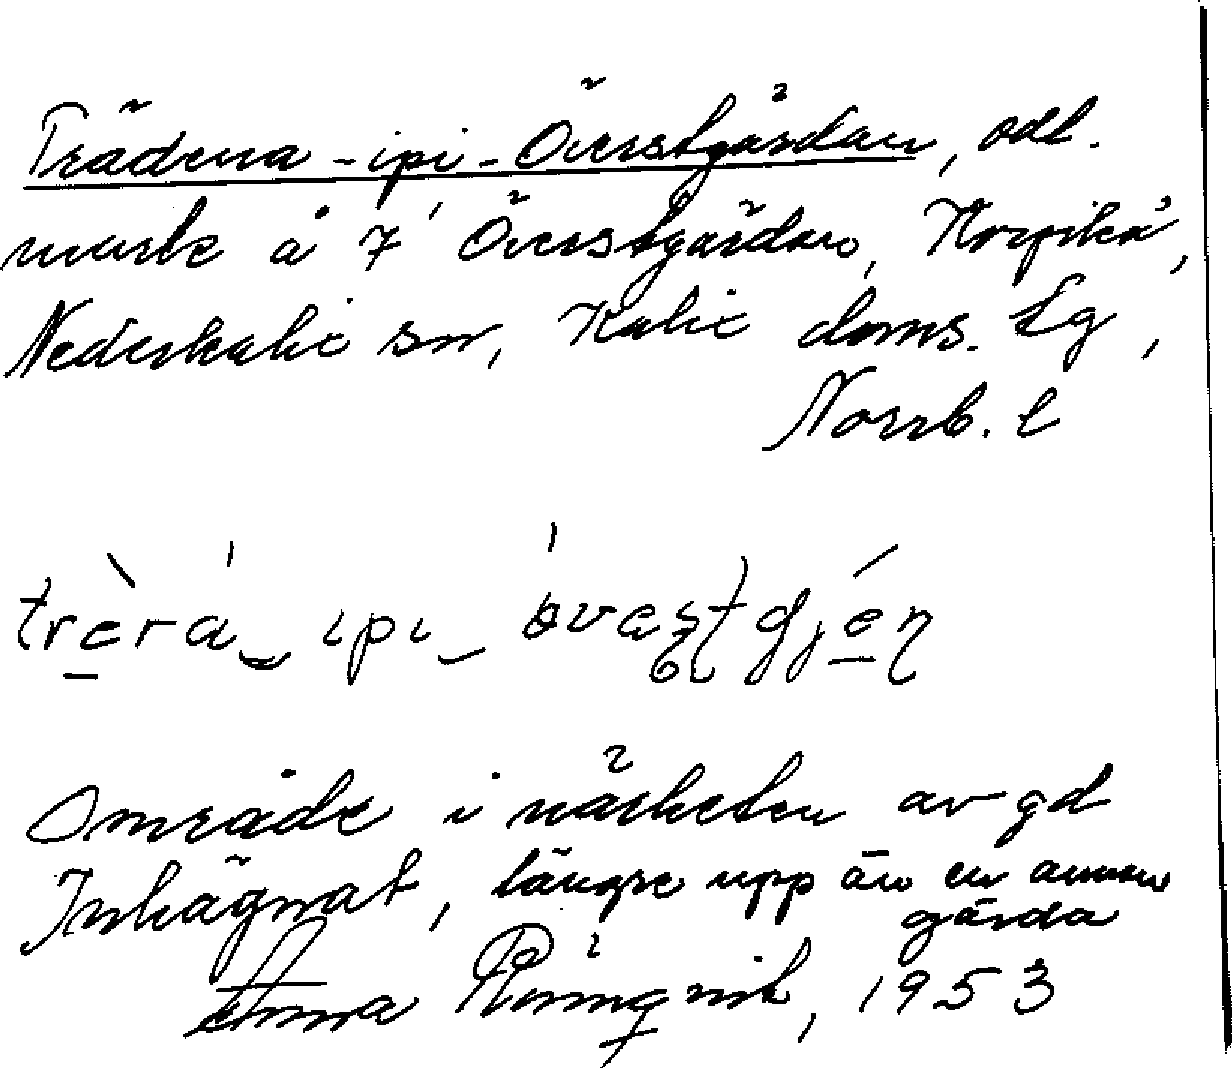 Trädena-ipi-Överstgärdan, odl.
mark å 7 Överstgärdan, Korpikå,
Nederkalix sn, Kalix doms. Lg,
Norrb. l
trèrá ipi óvæstgjén
Område i närheten av gd
Inhägnat, längre upp än en annan
gärda
Anna Rönnqvist, 1953